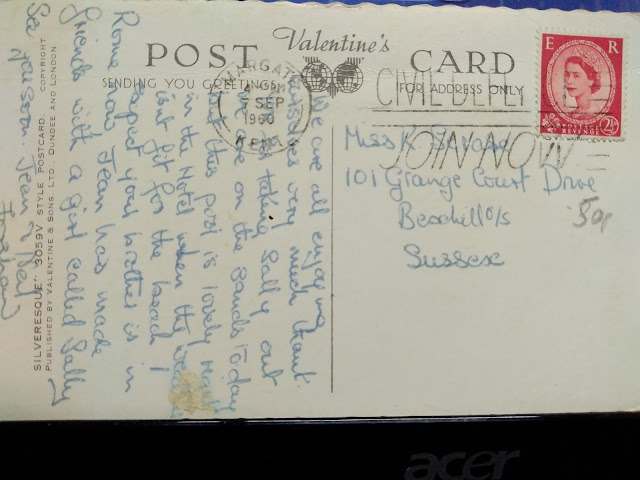 POST Valentine's CARD
SENDING YOU GREETINGS
FOR ADDRESS ONLY
E R
POSTAGE REVENUE
2½D
MARGATE
SEP
1960
KENT
CIVIL DEFENCE
JOIN NOW
Miss K.
101 Grange Court Drive
Bexhill o/s
Sussex
50p
We are all enjoying
very much thank
taking Sally out
are on the sands today
but this pool is lovely
in the Hotel when the
isn't fit for the beach I
expect your brother is in
Rome now Jean has made
friends with a girl called Sally
See you soon Jean
SILVERESQUE" 3059V STYLE POSTCARD. COPYRIGHT
PUBLISHED BY VALENTINE & SONS, LTD. DUNDEE AND LONDON
acer